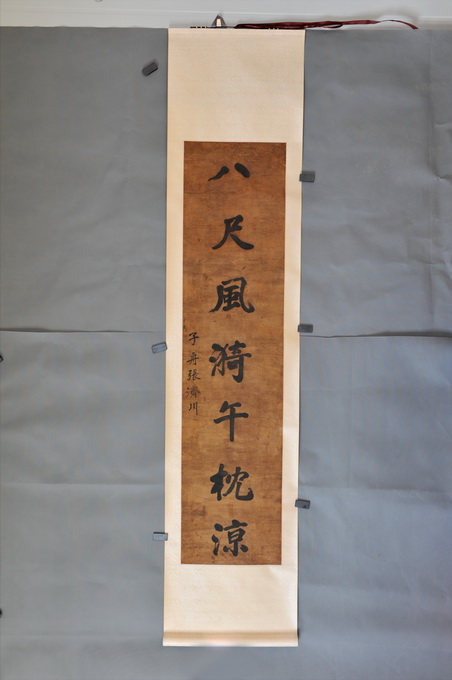 八尺風漪午枕涼
子舟張濟川